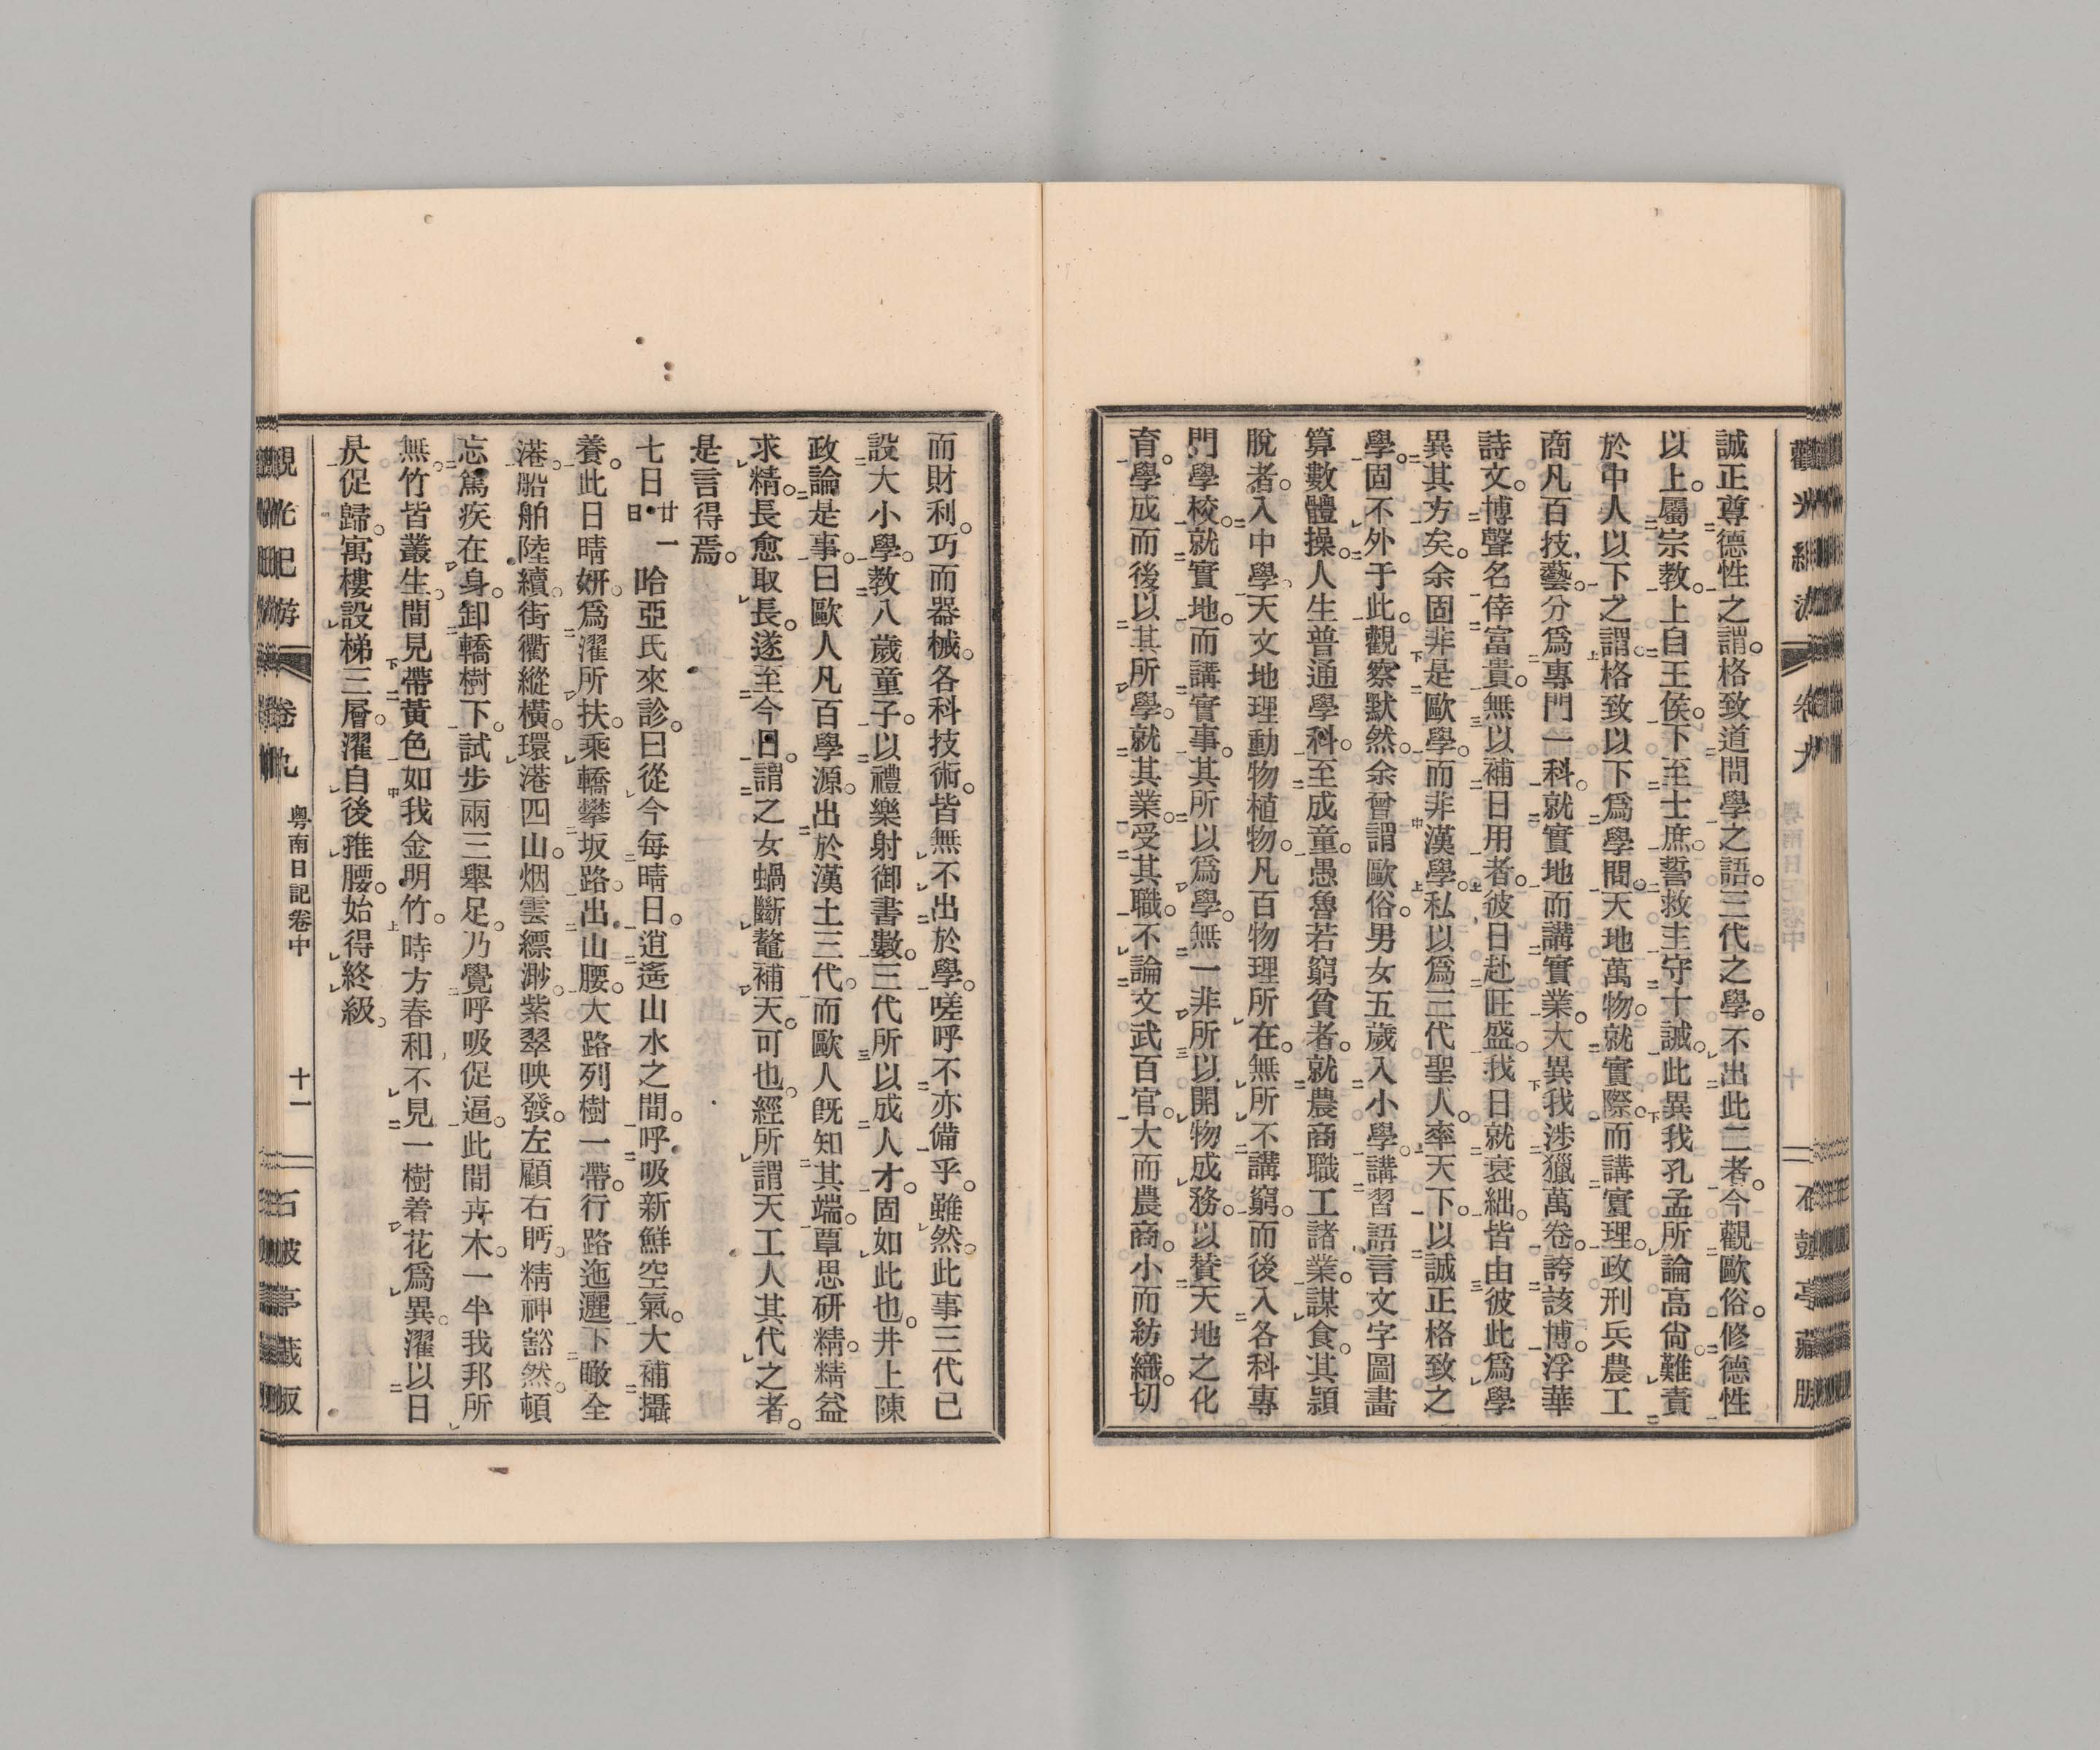 誠正尊德性之謂。格致道問學之語。三代之學。不出此二者。今觀歐俗。修德性
以上。屬宗教。上自王侯。下至士庶。誓救主守十誡。此異我孔孟所論高尙難責
於中人以下之謂。格致以下爲學問。天地萬物。就實際。而講實理。政刑兵農工
商凡百技藝。分爲專門一科。就實地而講實業。大異我涉獵萬卷。誇該博。浮華
詩文。博聲名倖富貴。無以補日用者。彼日赴旺盛。我日就衰絀。皆由彼此爲學
異其方矣。余固非是歐學。而非漢學。私以爲三代聖人。率天下。以誠正格致之
學。固不外于此。觀察默然。余曾謂歐俗。男女五歲入小學。講習語言文字圖畵
算數體操。人生普通學科。至成童。愚魯若窮貧者。就農商職工諸業。謀食。其穎
脫者。入中學。天文地理動物植物。凡百物理所在。無所不講窮。而後入各科專
門學校。就實地。而講實事。其所以爲學。無一非所以開物成務。以贊天地之化
育。學成而後以其所學。就其業。受其職。不論文武百官。大而農商。小而紡織。切
而財利。巧而器械。各科技術。皆無不出於學。嗟呼不亦備乎。雖然。此事三代已
設大小學。教八歲童子。以禮樂射御書數。三代所以成人才。固如此也。井上陳
政論是事。曰歐人凡百學源。出於漢土三代。而歐人旣知其端。覃思研精。精益
求精。長愈取長。遂至今日。謂之女蝸斷鼇補天。可也。經所謂天工人其代之者。
是言得焉。
七日廿一日 哈亞氏來診。曰從今每晴日。逍遙山水之間。呼吸新鮮空氣。大補攝
養。此日晴妍。爲濯所扶。乘轎攀坂路。出山腰。大路列樹一帶。行路迤邐。下瞰全
港。船舶陸續。街衢縱橫。環港四山。烟雲縹渺。紫翠映發。左顧右眄。精神豁然。頓
忘篤疾在身。卸轎樹下。試步兩三舉足。乃覺呼吸促逼。此間卉木。一半我邦所
無。竹皆叢生。間見帶黃色如我金明竹。時方春和。不見一樹着花爲異。濯以日
昃促歸。寓樓設梯三層。濯自後推腰。始得終級。
粤南日記卷中
十一